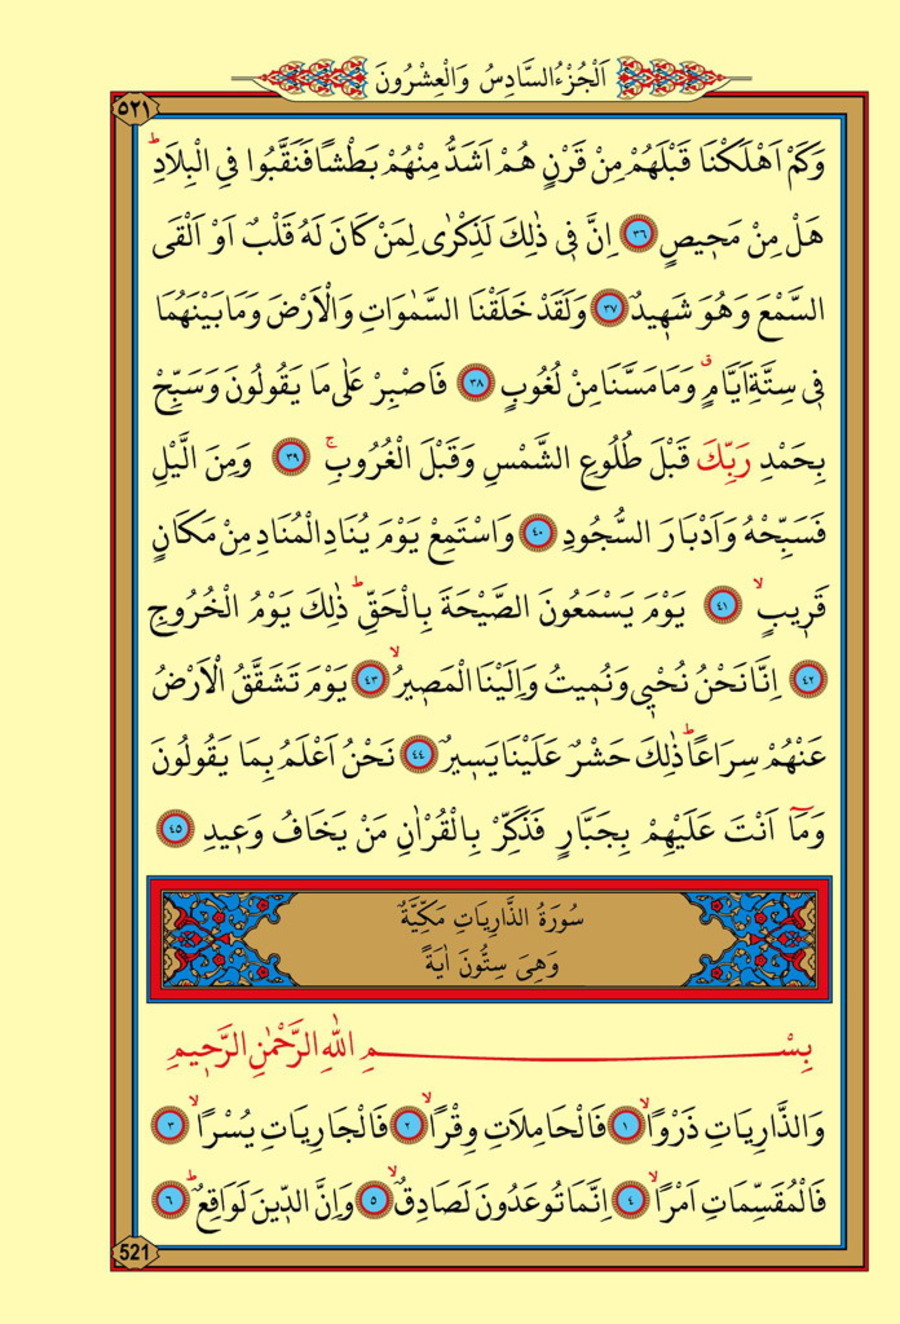 اَلْجُزْءُالسَّادِسُ وَالْعِشْرُونَ
٥٢١
وَكَمْ اَهْلَكْنَا قَبْلَهُمْ مِنْ قَرْنٍ هُمْ اَشَدُّ مِنْهُمْ بَطْشًا فَنَقَّبُوا فِي الْبِلَادِۜ
هَلْ مِنْ مَح۪يصٍ ٣٦ اِنَّ ف۪ي ذٰلِكَ لَذِكْرٰى لِمَنْ كَانَ لَهُ قَلْبٌ اَوْ اَلْقَى
السَّمْعَ وَهُوَ شَه۪يدٌ ٣٧ وَلَقَدْ خَلَقْنَا السَّمٰوَاتِ وَالْاَرْضَ وَمَا بَيْنَهُمَا
ف۪ي سِتَّةِ اَيَّامٍۗ وَمَا مَسَّنَا مِنْ لُغُوبٍ ٣٨ فَاصْبِرْ عَلٰى مَا يَقُولُونَ وَسَبِّحْ
بِحَمْدِ رَبِّكَ قَبْلَ طُلُوعِ الشَّمْسِ وَقَبْلَ الْغُرُوبِۚ ٣٩ وَمِنَ الَّيْلِ
فَسَبِّحْهُ وَاَدْبَارَ السُّجُودِ ٤٠ وَاسْتَمِعْ يَوْمَ يُنَادِ الْمُنَادِ مِنْ مَكَانٍ
قَر۪يبٍۙ ٤١ يَوْمَ يَسْمَعُونَ الصَّيْحَةَ بِالْحَقِّۜ ذٰلِكَ يَوْمُ الْخُرُوجِ
٤٢ اِنَّا نَحْنُ نُحْي۪ وَنُم۪يتُ وَاِلَيْنَا الْمَص۪يرُۙ ٤٣ يَوْمَ تَشَقَّقُ الْاَرْضُ
عَنْهُمْ سِرَاعًاۜ ذٰلِكَ حَشْرٌ عَلَيْنَا يَس۪يرٌ ٤٤ نَحْنُ اَعْلَمُ بِمَا يَقُولُونَ
وَمَٓا اَنْتَ عَلَيْهِمْ بِجَبَّارٍ فَذَكِّرْ بِالْقُرْاٰنِ مَنْ يَخَافُ وَع۪يدِ ٤٥
سُورَةُ الذَّارِيَاتِ مَكِّيَّةٌ
وَهِيَ سِتُّونَ اٰيَةً
بِسْمِ اللّٰهِ الرَّحْمٰنِ الرَّح۪يمِ
وَالذَّارِيَاتِ ذَرْوًاۙ ١ فَالْحَامِلَاتِ وِقْرًاۙ ٢ فَالْجَارِيَاتِ يُسْرًاۙ ٣
فَالْمُقَسِّمَاتِ اَمْرًاۙ ٤ اِنَّمَا تُوعَدُونَ لَصَادِقٌۙ ٥ وَاِنَّ الدّ۪ينَ لَوَاقِعٌۜ ٦
521